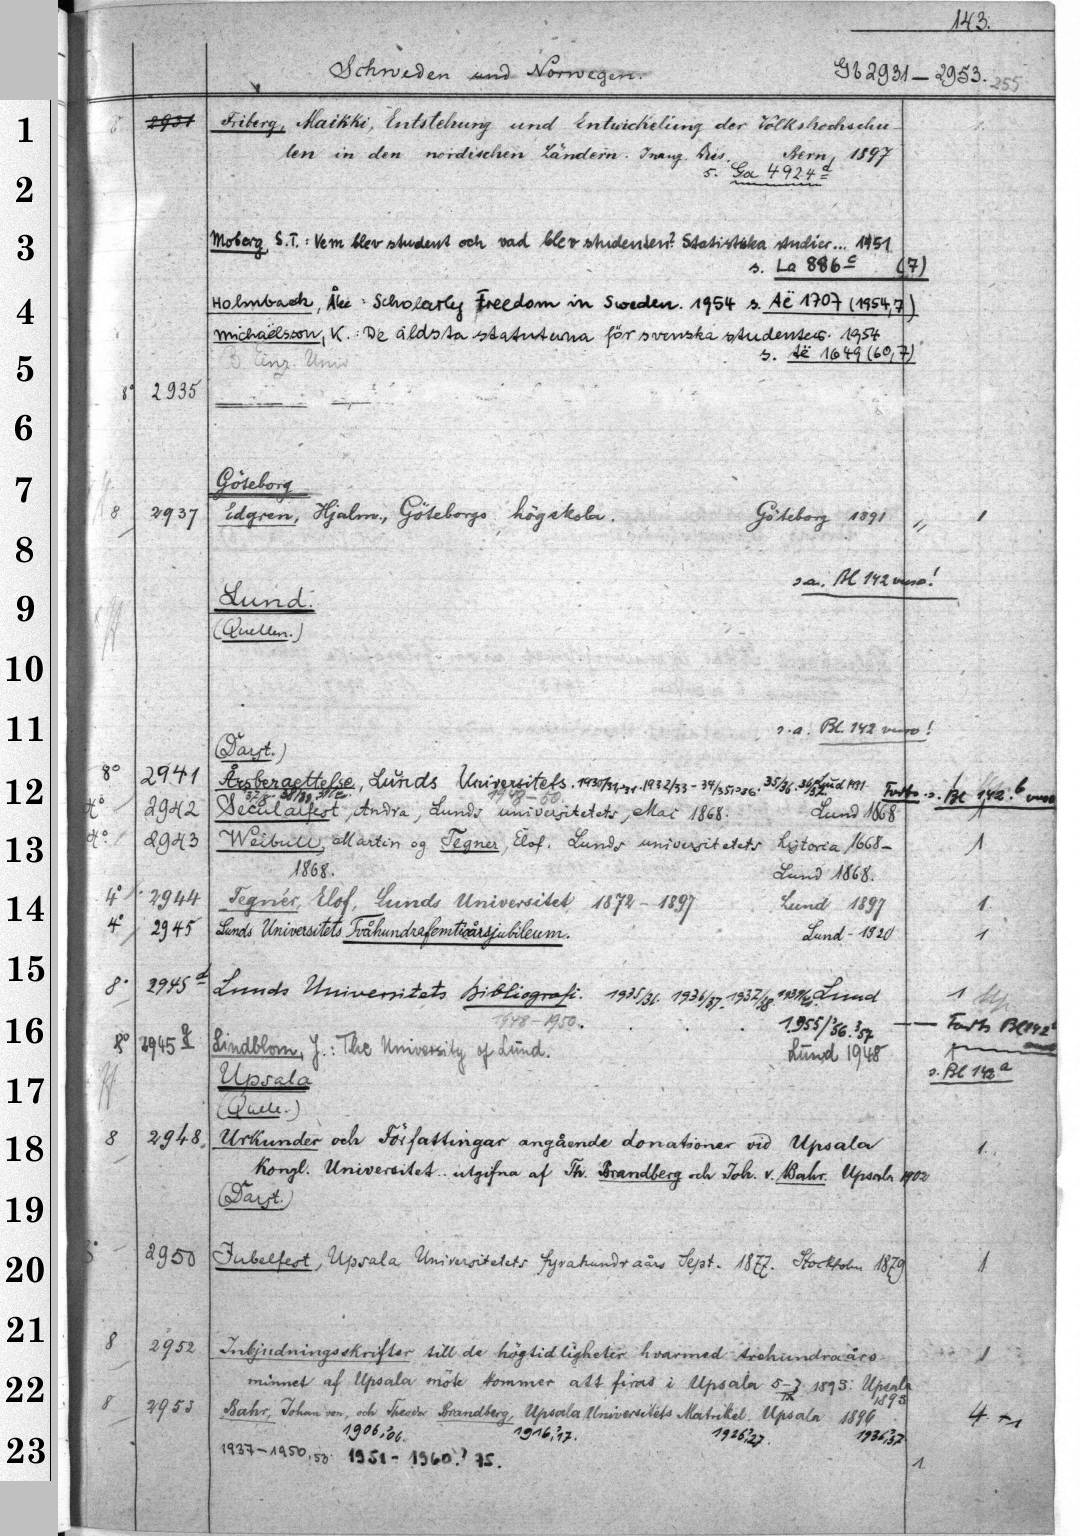 143.
Schweden und Norwegen. Gb 2931 — 2953. 255
1 8 2931 Friberg, Maikki, Entstehung und Entwickelung der Volkshochschu- 1.
len in den nordischen Ländern. Inaug. Diss. Bern, 1897
2 s. Ga 4924 d
3 Moberg, S.T.: Vem blev student och vad blev studenten? Statistiska studier... 1951
s. La 886 c (7)
4 Holmback, Åke: Scholarly Freedom in Sweden. 1954 s. Aë 1707 (1954,7)
Michaëlsson, K.: De äldsta statuterna för svenska studenter. 1954
5 s. Aë 1649 (60,7)
Einz. Univ
8° 2935
6
7 Göteborg
8 2937 Edgren, Hjalm., Göteborgs högskola. Göteborg 1891 1
8
s.a. Bl 142 verso!
9 Lund.
(Quellen.)
10
11 s.a. Bl. 142 verso!
(Darst.)
8° 2941 Årsberaettelse, Lunds Universitets.
12 Forts. s. Bl 142 b verso
4° 2942 Secularfest, Andra, Lunds universitetets, Mai 1868. Lund 1868 1
13 4° 2943 Weibull, Martin og Tegner, Elof. Lunds universitetets historia 1668— 1
1868. Lund 1868.
14 4° 2944 Tegnér, Elof, Lunds Universitet 1872 - 1897 Lund 1897 1
4° 2945 Lunds Universitets Tvåhundrafemtioårsjubileum. Lund - 1920 1
15 8° 2945 d Lunds Universitets Bibliografi. 1935/36. 1936/37. 1937/38 Lund 1
1948-1950. 1955/56. 57 — Forts Bl 142
16 8° 2945 g Lindblom, J.: The University of Lund. Lund 1948
s. Bl 142 a
17 Upsala
(Quell.)
18 8 2948. Urkunder och Författingar angående donationer vid Upsala 1.
Kongl. Universitet.. utgifna af Th. Brandberg och Joh. v. Bahr. Upsala 1902
19 (Darst.)
20 8° 2950 Jubelfest, Upsala Universitetets fyrahundraårs Sept. 1877. Stockholm 1879 1
21 8 2952 Inbjudningsskrifter till de högtidligheter hvarmed trehundraårs 1
22 minnet af Upsala möte kommer att firas i Upsala 5-7/IX 1893. Upsala
1893
8 2953 Bahr, Johan von, och Theodor Brandberg, Upsala Universitets Matrikel. Upsala 1896 4 + 1
1906,'06. 1916,'17. 1926,'27. 1936,'37
23 1937-1950, 50. 1951 - 1960. 75. 1